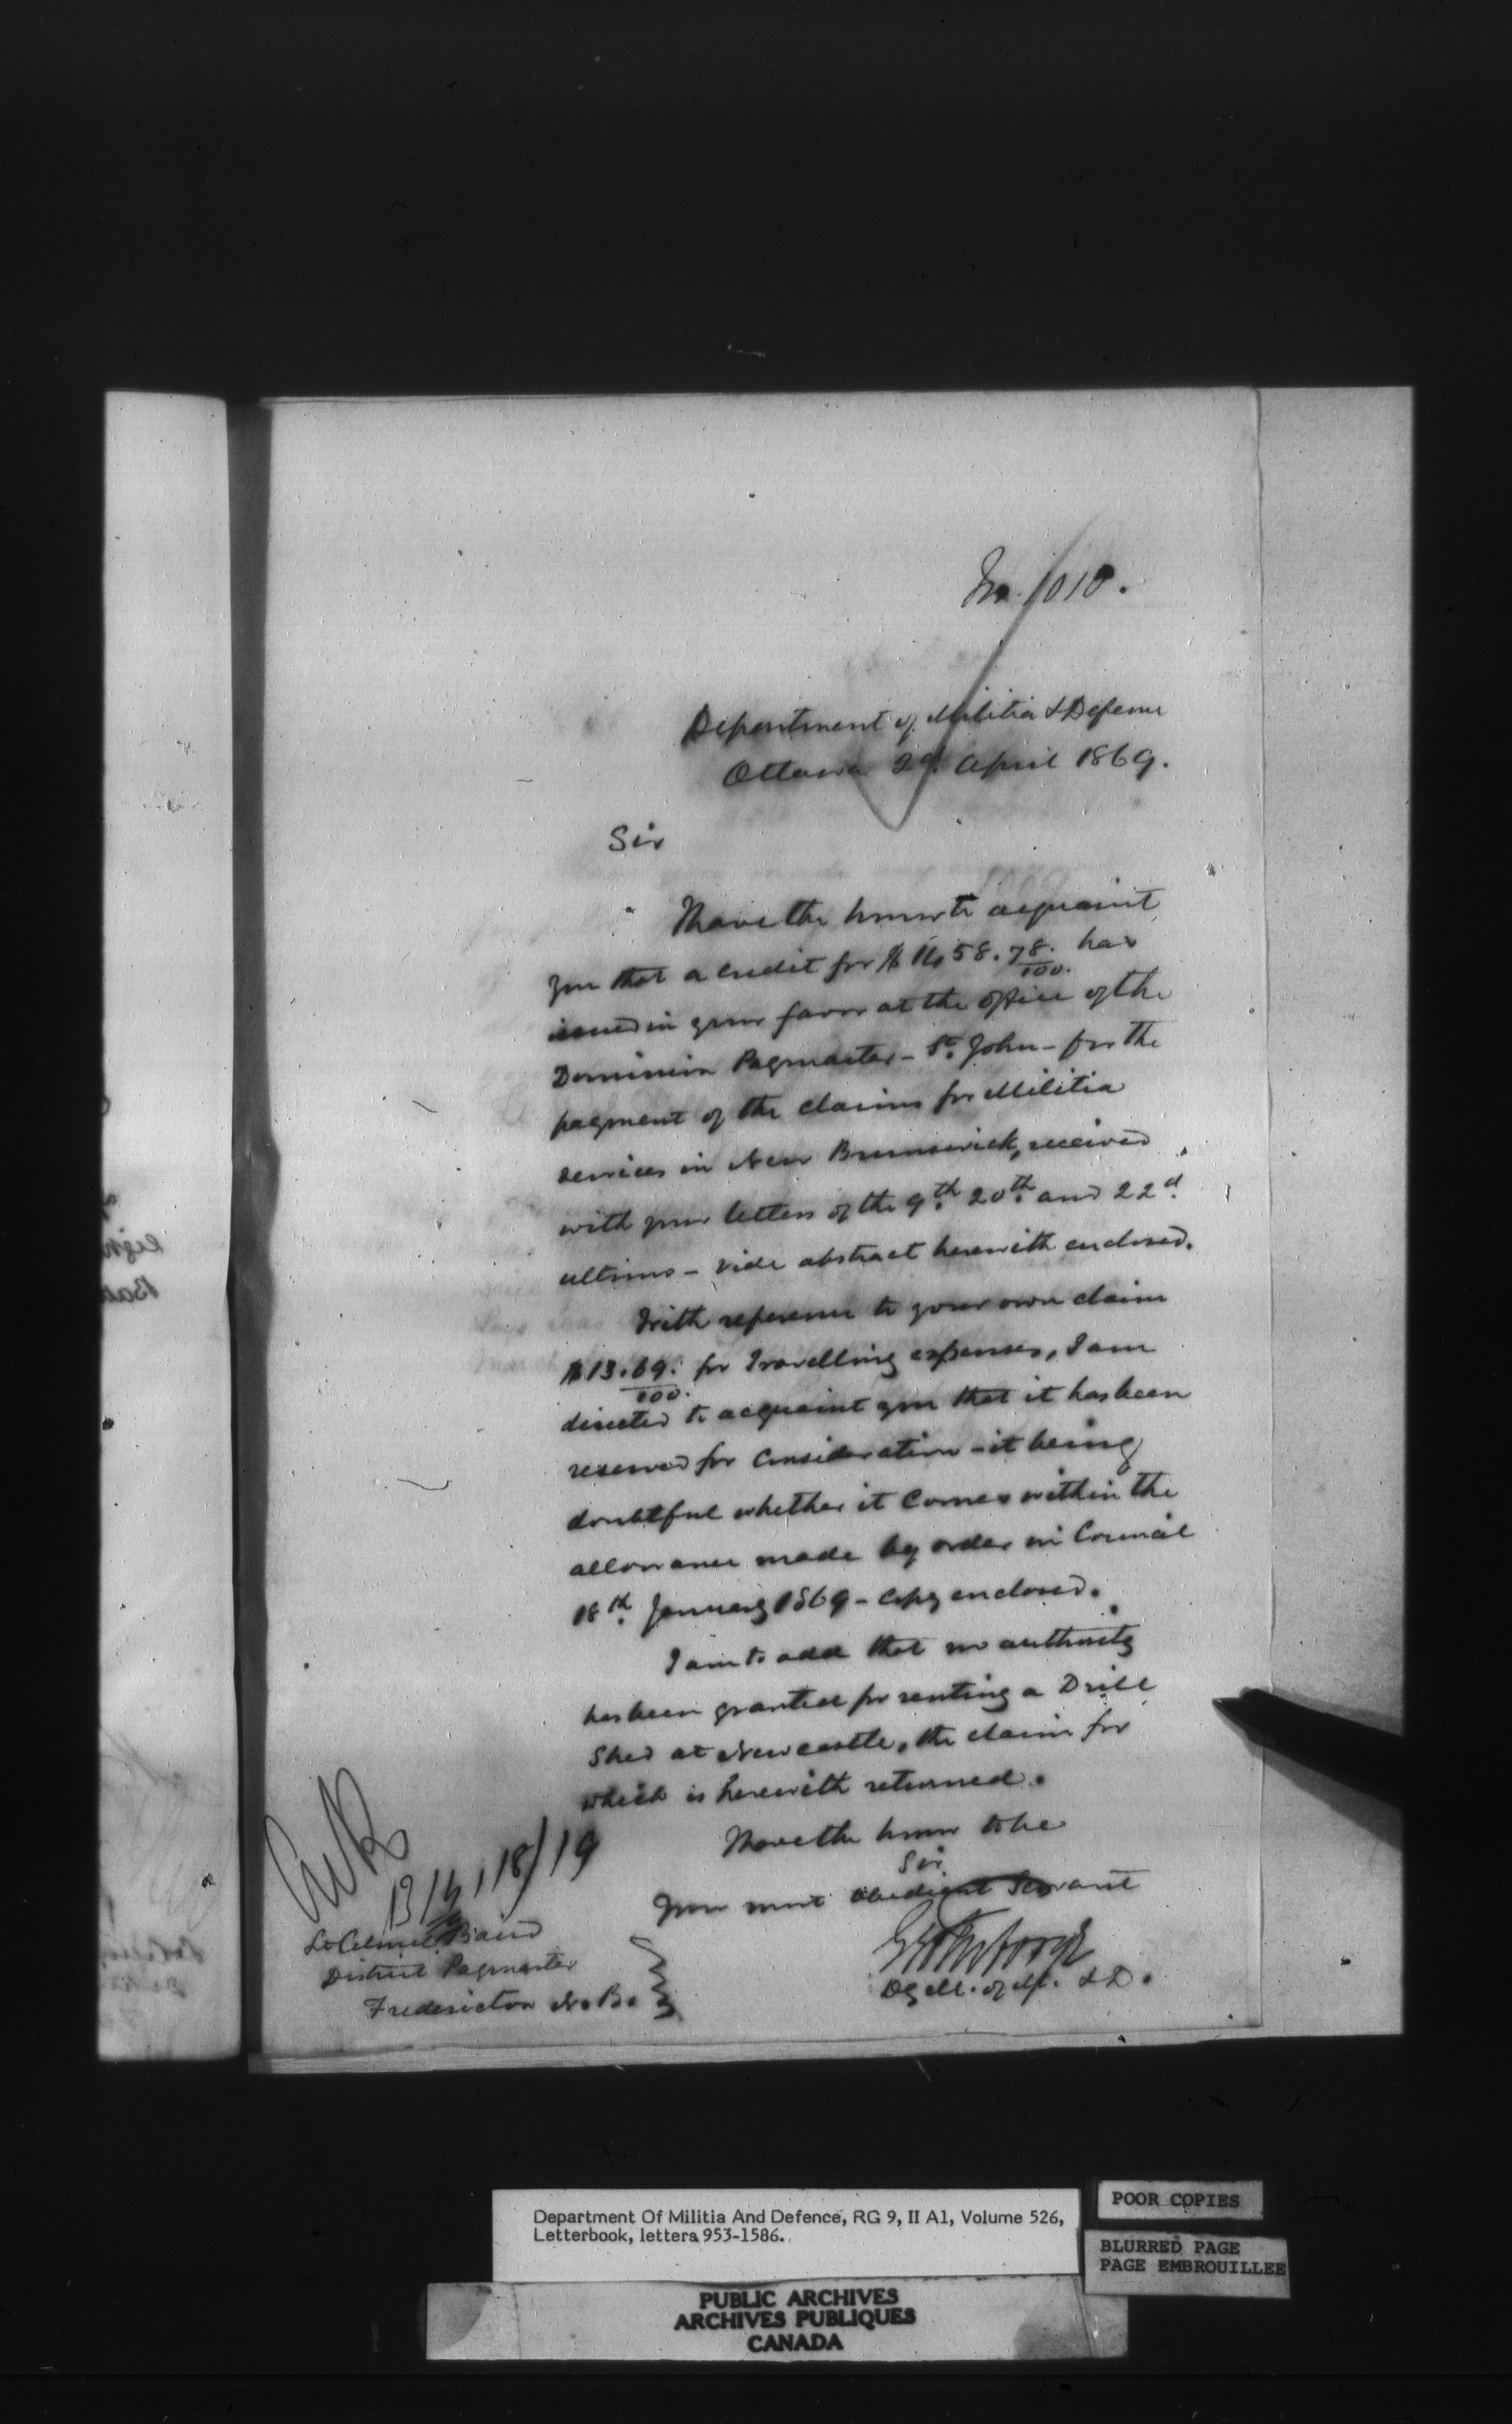 No. 1010.
Department of Militia & Defence
Ottawa 2d. April 1869.
Sir
I have the honor to acquaint
you that a credit for $1658.78/100. has
issued in your favor at the office of the
Dominion Paymaster - St. John - for the
payment of the claims for Militia
services in New Brunswick, received
with your letters of the 9th. 20th. and 22d.
ultimo - vide abstract herewith enclosed.
With reference to your own claim
$13.69./100. for Travelling expenses, I am
directed to acquaint you that it has been
reserved for consideration - it being
doubtful whether it comes within the
allowance made by order in Council
18th. January 1869 - copy enclosed.
I am to add that no authority
has been granted for renting a Drill
Shed at Newcastle, the claim for
which is herewith returned.
I have the honor to be
Sir
Your most obedient Servant
D of M. & D.
Lt Colonel Baird
District Paymaster
Fredericton N.B.
Department Of Militia And Defence, RG 9, II A1, Volume 526,
Letterbook, letters 953-1586.
POOR COPIES
BLURRED PAGE
PAGE EMBROUILLEE
PUBLIC ARCHIVES
ARCHIVES PUBLIQUES
CANADA